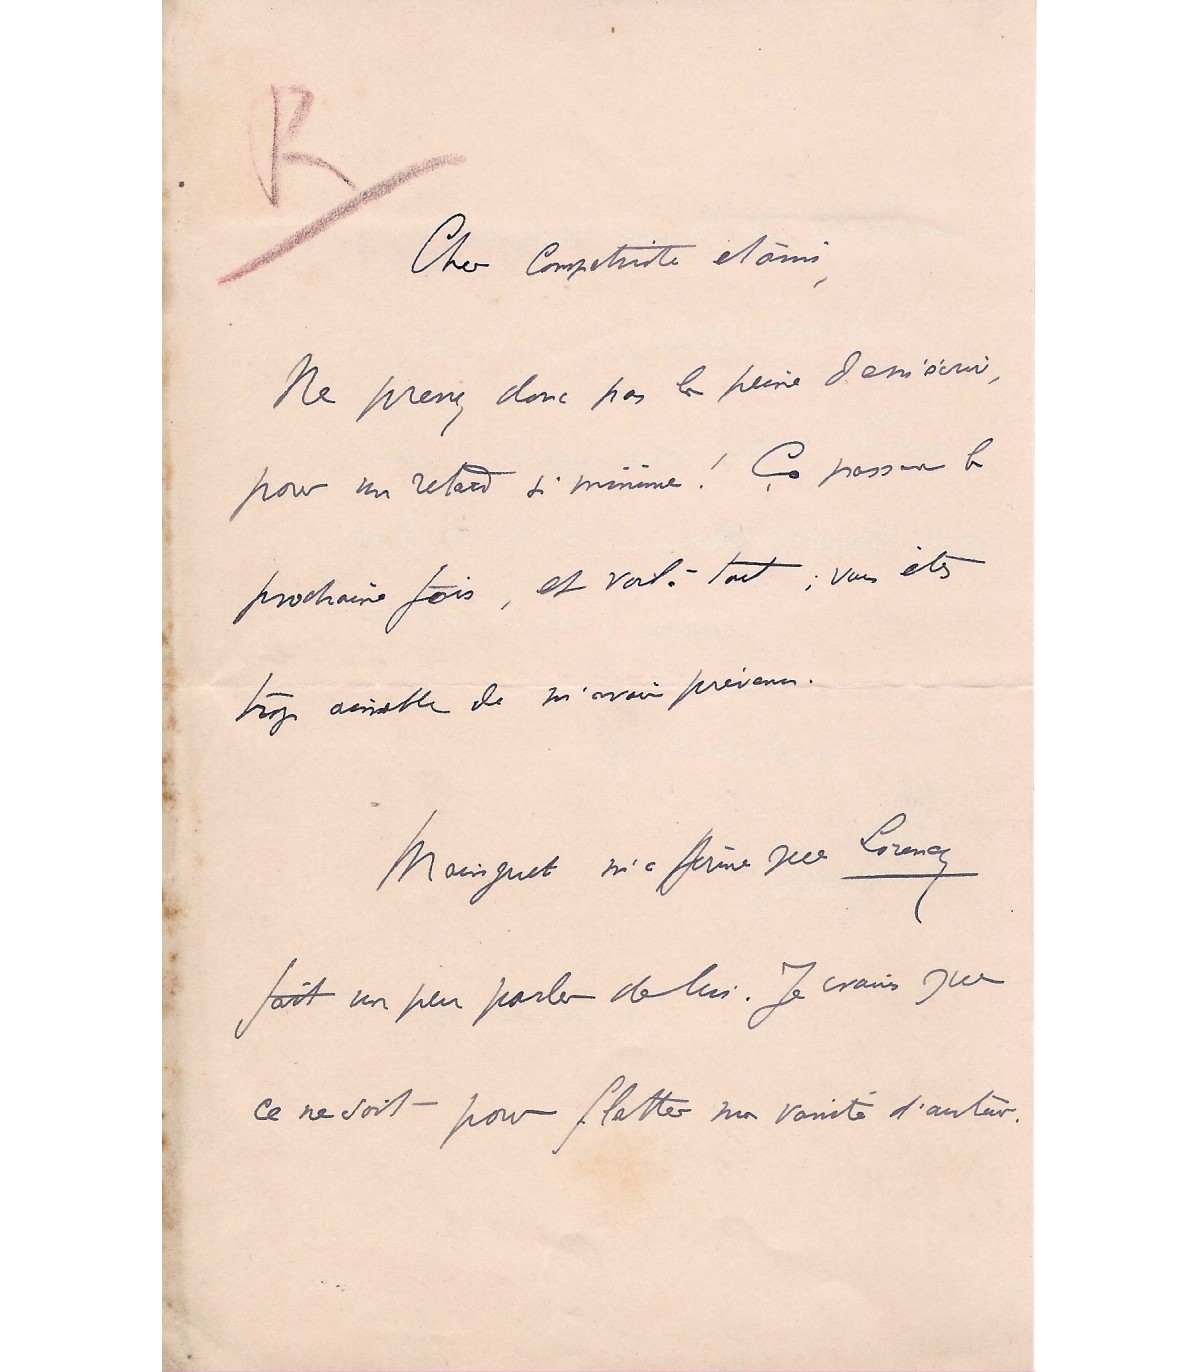 R
Cher compatriote et ami,
Ne prenez donc pas la peine de m'écrire,
pour un retard si minime ! Ça passera la
prochaine fois, et voilà tout ; vous êtes
trop aimable de m'avoir prévenu.
Mainguet m'a que Lorenzy
fait un peu parler de lui. Je crains que
ce ne soit pour flatter ma vanité d'auteur.